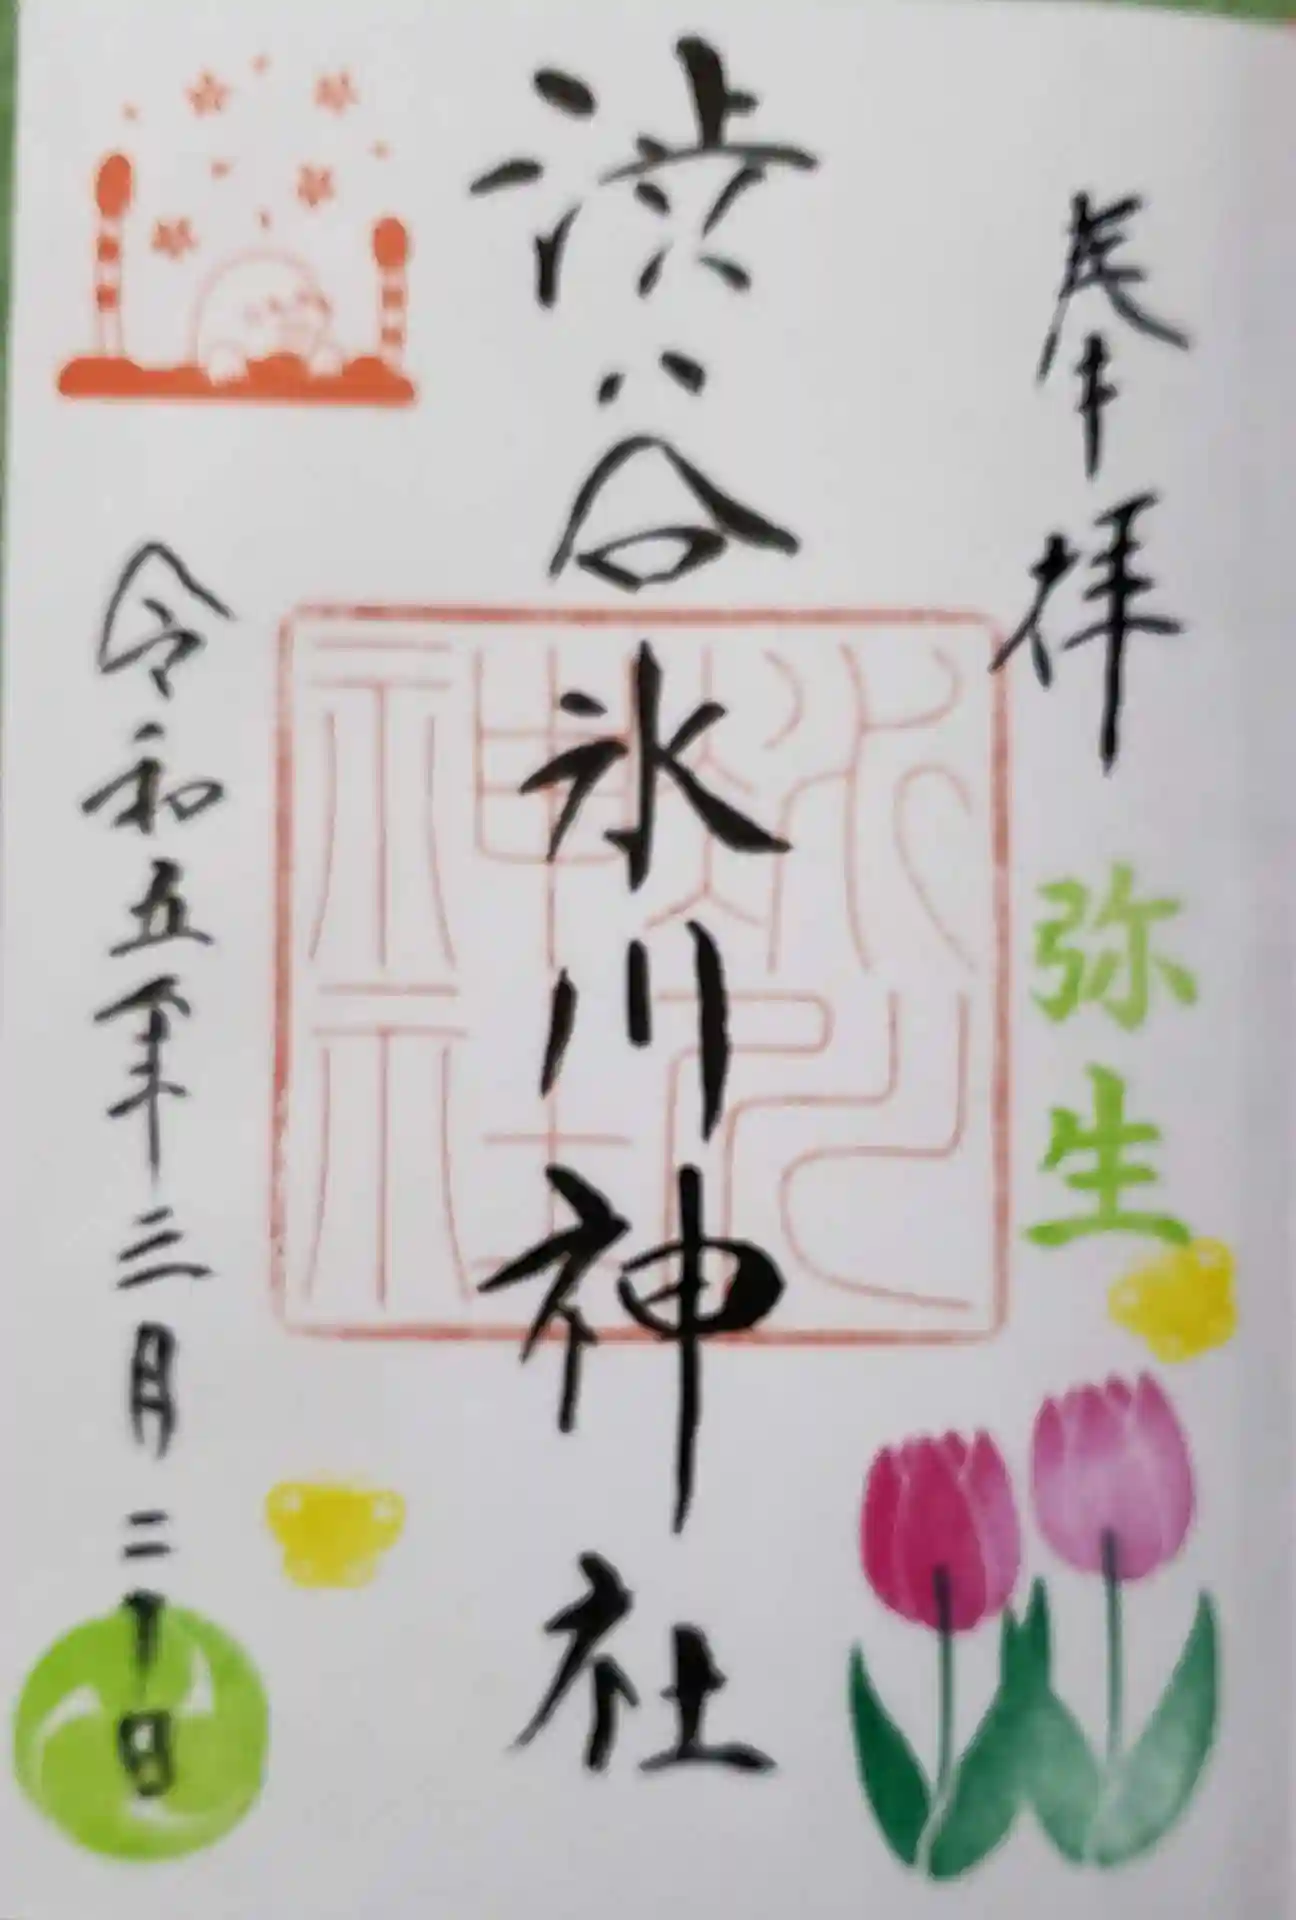 奉拝
弥生
渋谷氷川神社
氷川神社
令和五年三月二十日